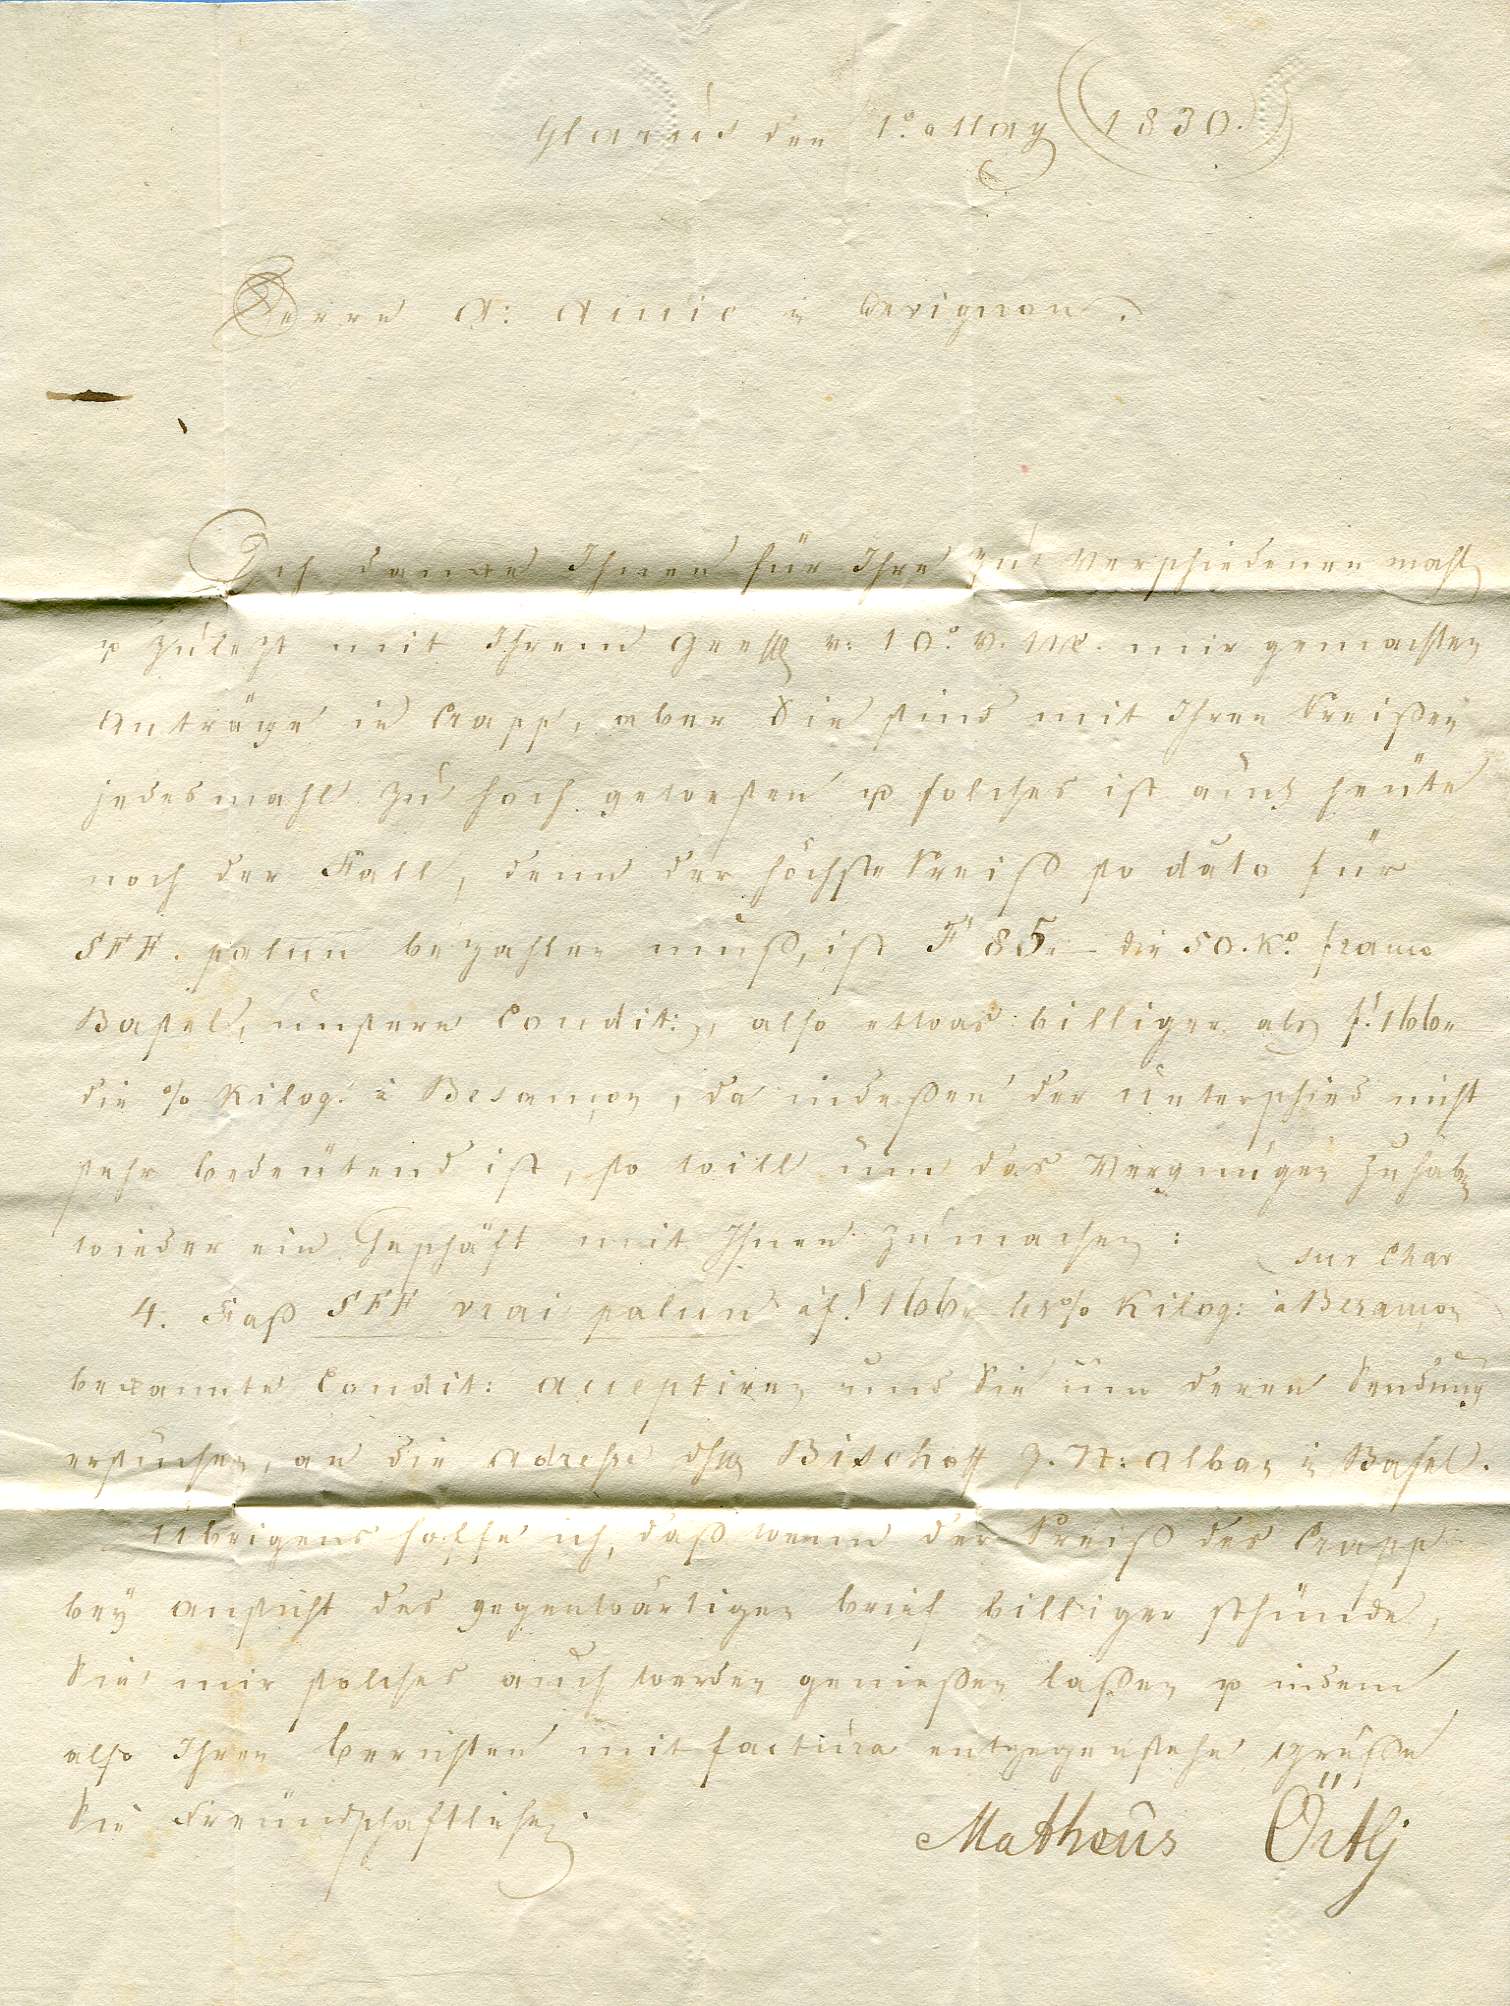 Glarus den 1º. May 1830.
Herrn A: Amic in Avignon.
Ich danke Ihnen für Ihre zu verschiedenen mahl
& zulezt mit Ihrem v: 10º. mir gemachten
Anträge in Crapp, aber Sie sind mit Ihren Preißen
jedesmahl zu hoch geweßen & solches ist auch heüte
noch der Fall, denn der höchste Preiß so dato für
SFF. palun bezahlen muß, ist F 85.- die 50. Kº. franco
Basel, unsere Condit:, also etwas billiger als f. 166.
die % Kilog. à Besançon, da indeßen der unterschied nicht
sehr bedeütend ist, so will um das Vergnügen zu haben
wieder ein Geschäft mit Ihnen zu machen:
sur Char
4. Faß SFF vrai palun à f. 166. les % Kilog: à Besançon
bekannte Condit: acceptiren und Sie um deren Sendung
ersuchen, an die Adresse Bischoff z. St: Alban in Basel.
Übrigens hoffe ich, daß wenn der Preiß des Crapp
bey ansicht des gegenwärtigen brief billiger sthünde,
Sie mir solches auch werden genießen laßen & indem
also Ihren berichten mit factura entgegensehe, grüße
Sie Freündschaftlichen
Matheus Örtlj